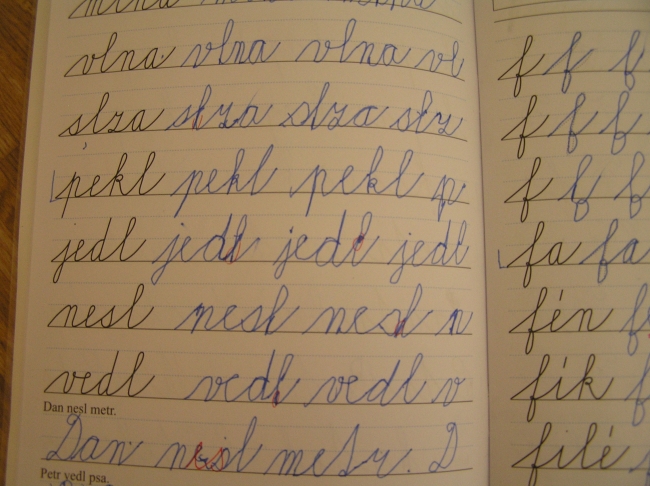 vlna vlna vlna vl
slza slza slza slz
pekl pekl pekl p
jedl jedl jedl jedl
nesl nesl nesl n
vedl vedl vedl v
Dan nesl metr.
Dan nesl metr. D
Petr vedl psa.
f f f
f f f
f f f
fa fa
fén f
fík f
filé f